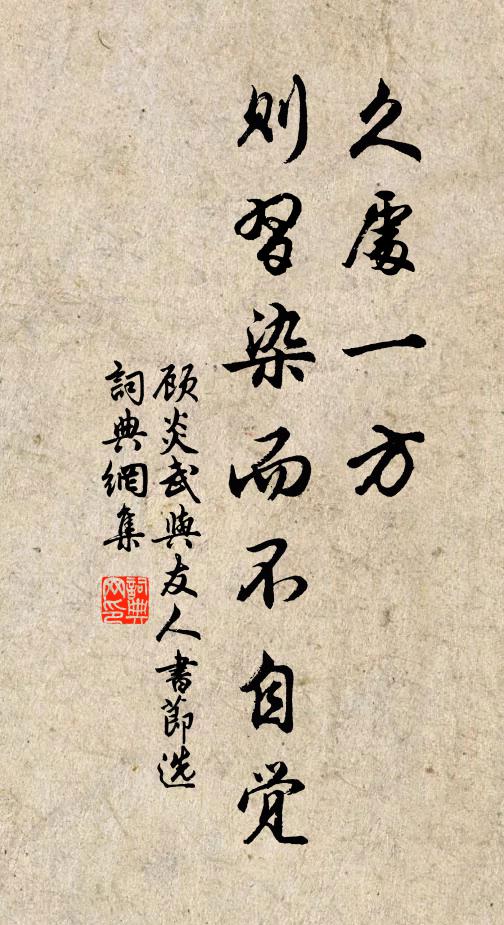 久處一方
則習染而不自觉
顾炎武與友人書節选
詞典網集
詞典
网印